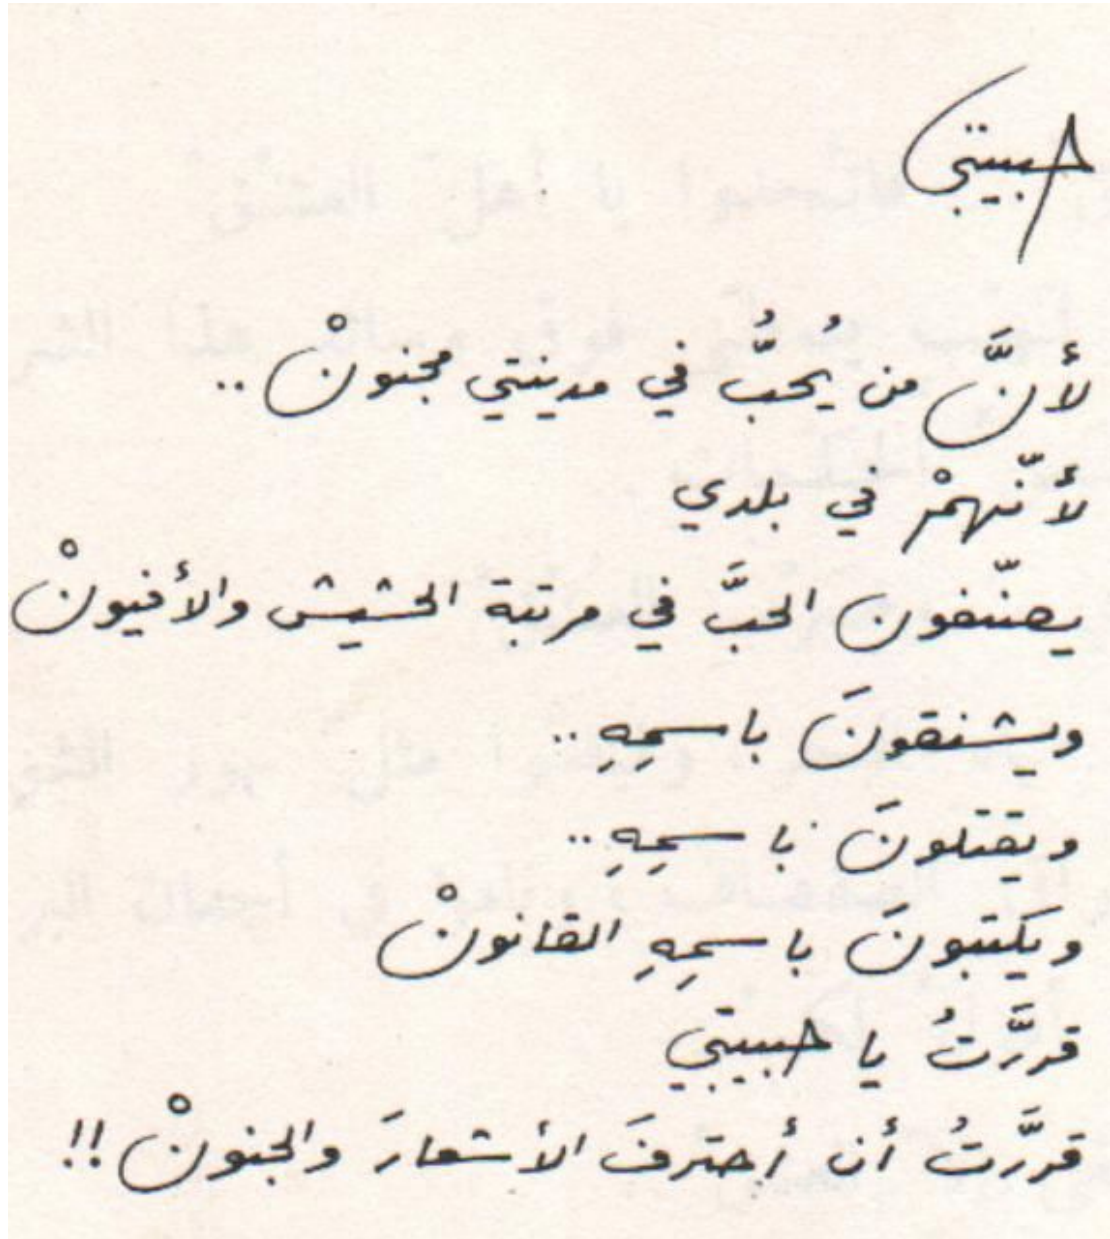 حبيبتي
لأنَّ من يُحبُّ في مدينتي مجنونْ ..
لأنّهمْ في بلدي
يصنّفون الحبَّ في مرتبة الحشيش والأفيونْ
ويشنقونَ باسمِهِ ..
ويقتلونَ باسمِهِ ..
ويكتبونَ باسمِهِ القانونْ
قررَّتُ يا حبيبتي
قررَّتُ أن أحترفَ الأشعارَ والجنونْ !!